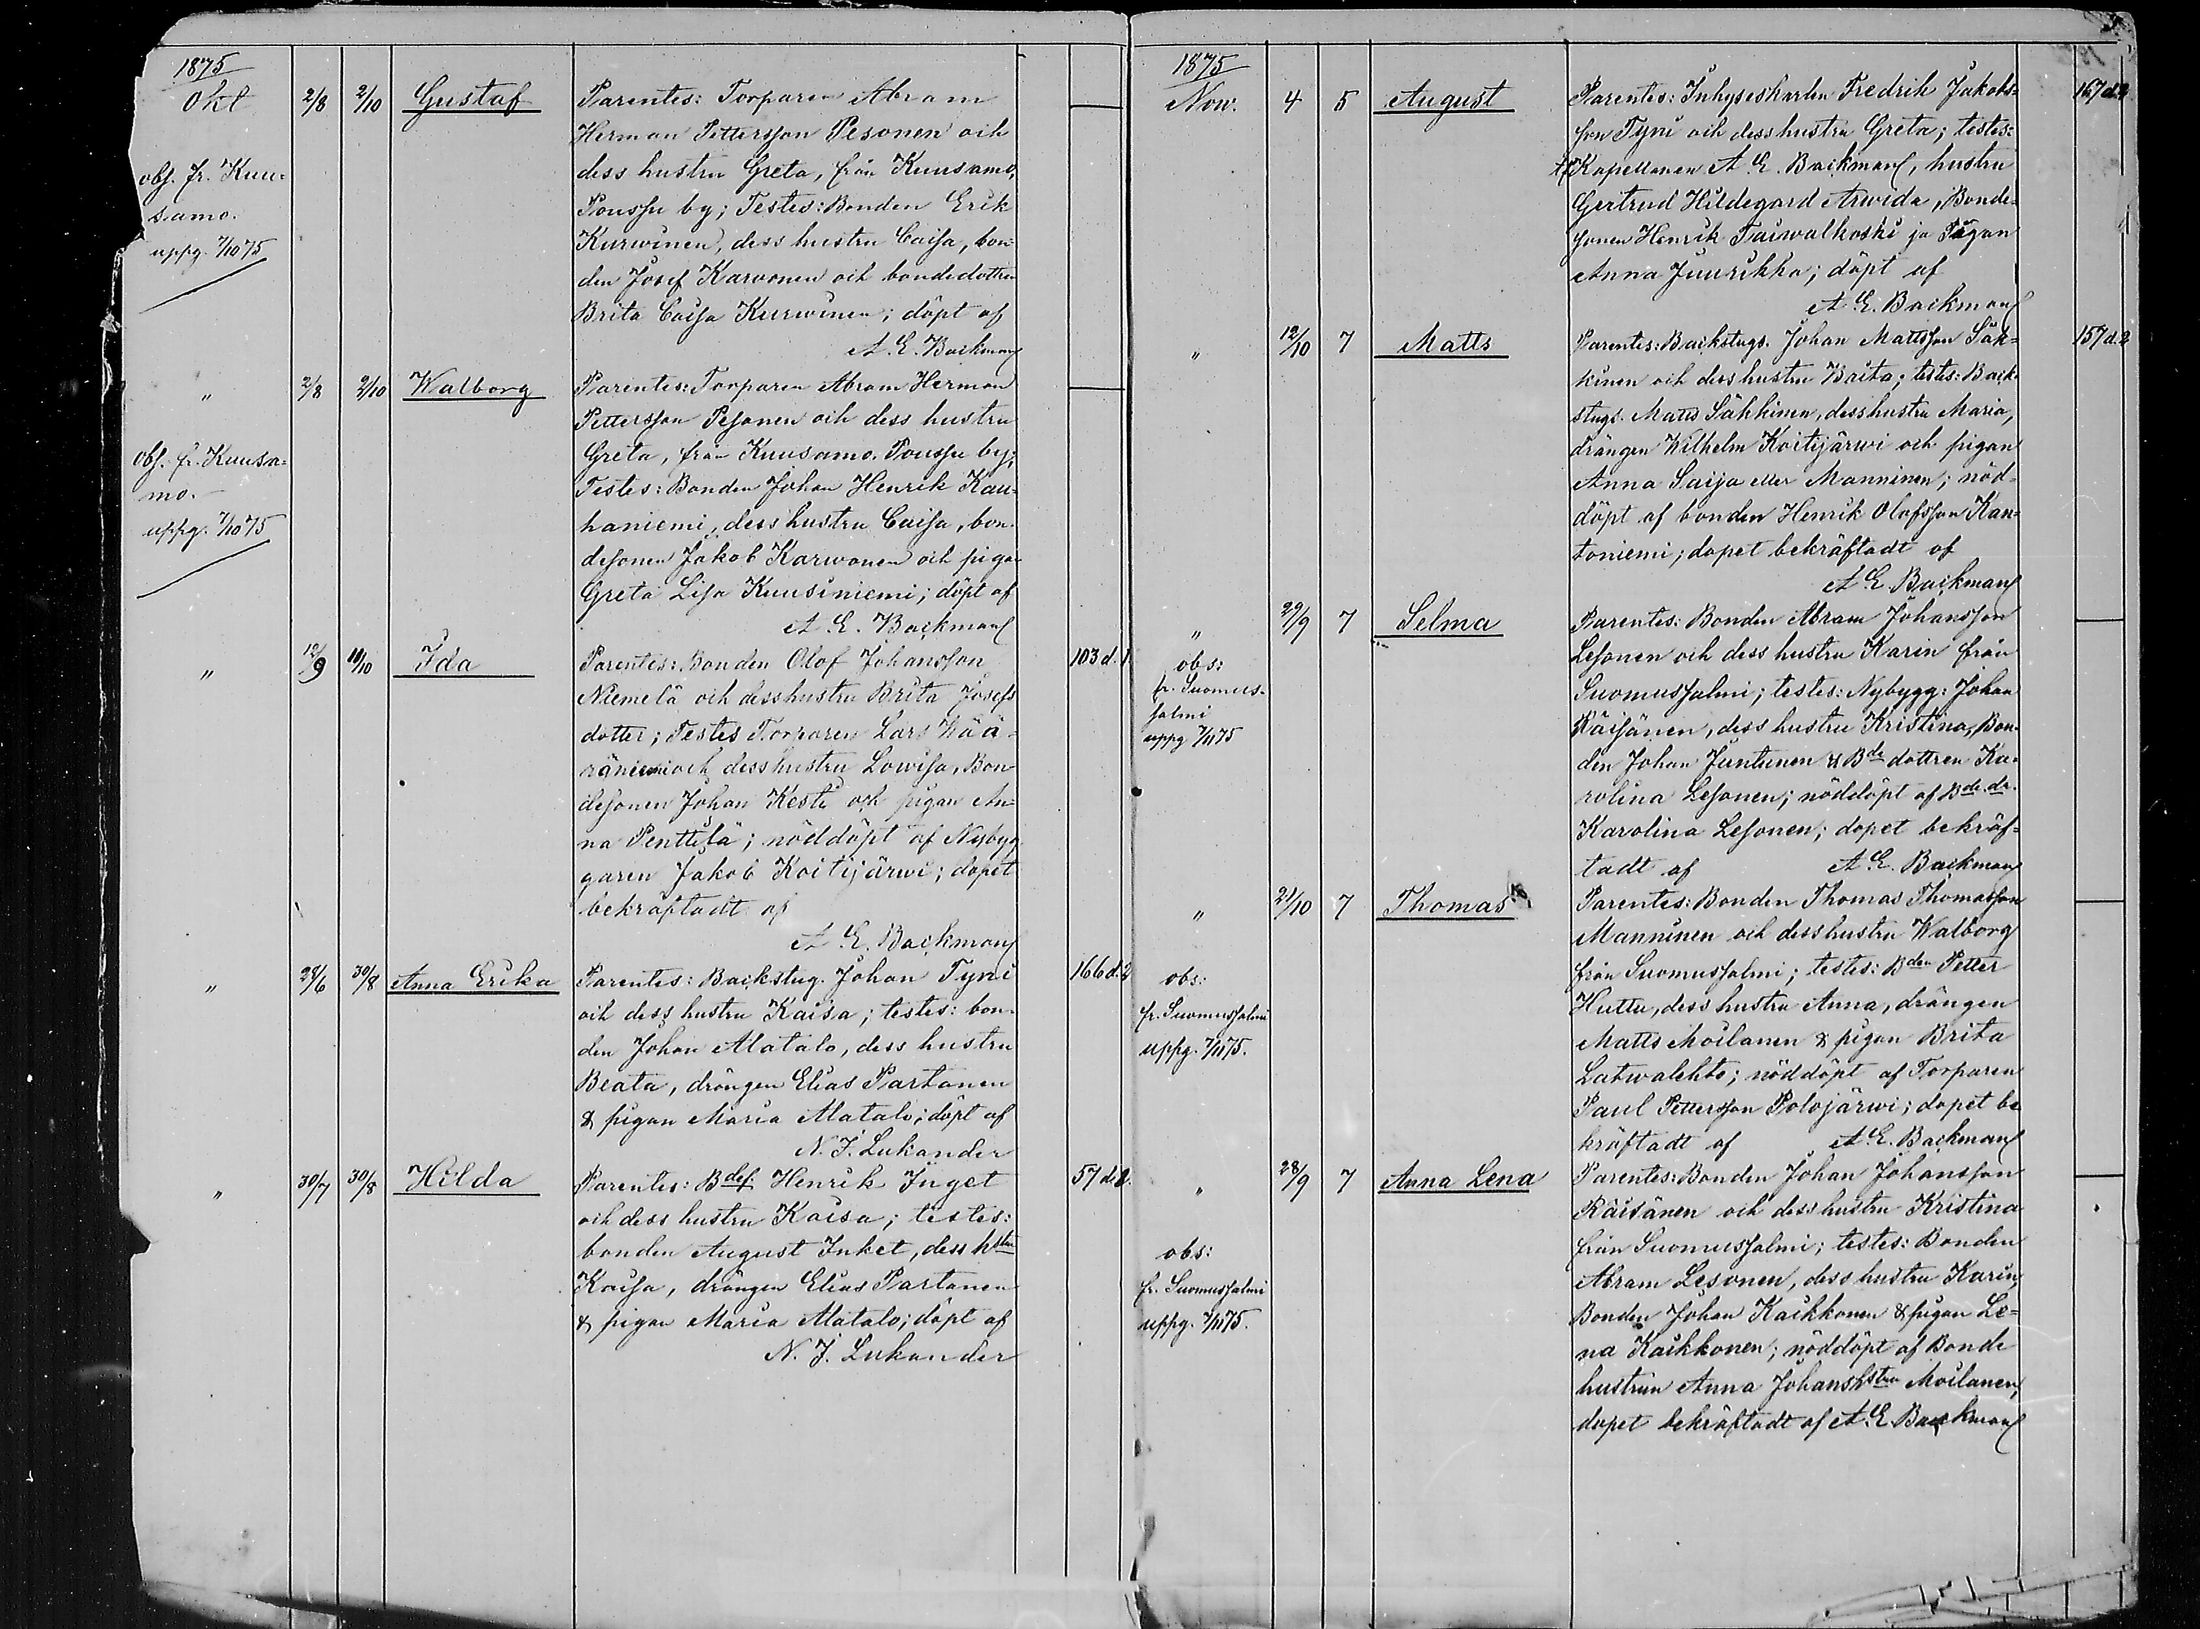 1875
Okt 2/8 2/10 Gustaf Parentes: Torparen Abram
Herman Pettersson Pesonen och
obs. fr. Kuu-
samo.
uppg. 7/10 75
dess hustru Greta, från Kuusamo,
Poussu by; Testes: Bonden Erik
Kurwinen, dess hustru Caisa, bon-
den Josef Karvonen och bondedottren
Brita Caisa Kurwinen; döpt af
A. E. Backman
" 2/8 2/10 Walborg Parentes: Torparen Abram Herman
Pettersson Pesonen och dess hustru
obs. fr. Kuusa-
mo.
uppg. 7/10 75
Greta, från Kuusamo. Poussu by;
Testes: Bonden Johan Henrik Kau-
haniemi, dess hustru Caisa, bon-
desonen Jakob Karwonen och pigan
Greta Lisa Kuusiniemi; döpt af
A. E. Backman
" 12/9 11/10 Ida Parentes: Bonden Olof Johansson 103 d. 1.
Niemelä och dess hustru Brita Josefs
dotter; Testes Torparen Lars Wää-
räniemi och dess hustru Lowisa, Bon
desonen Johan Kesti och pigan An-
na Penttilä; nöddöpt af Nybyg
garen Jakob Koitijärwi; dopet
bekräftadt af
A. E. Backman
" 28/6 30/8 Anna Erika Parentes: Backstug. Johan Tyni 166 d. 2
och dess hustru Kaisa; testes: bon-
den Johan Alatalo, dess hustru
Beata, drängen Elias Partanen
& pigan Maria Alatalo; döpt af
N. J. Lukander
" 30/7 30/8 Hilda Parentes: Bdes. Henrik Inget 57 d. 2.
och dess hustru Kaisa; testes:
bonden August Inket, dess hstru
Kaisa, drängen Elias Partanen
& pigan Maria Alatalo; döpt af
N. J. Lukander
1875
Nov. 4 5 August Parentes: Inhyseskarlen Fredrik Jakobs- 167 d. 2
son Tyni och dess hustru Greta; testes:
Kapellanen A. E. Backman, hustru
Gertrud Hildegard Arwida, Bonde-
sonen Henrik Taiwalkoski ja Pigan
Anna Juurikka; döpt af
A. E. Backman
" 12/10 7 Matts Parentes: Backstugs. Johan Mattsson Säk- 157 d. 2
kinen och dess hustru Brita; testes: Back-
stugs. Matts Säkkinen, dess hustru Maria,
drängen Wilhelm Koitijärwi och pigan
Anna Saija eller Manninen; nöd-
döpt af bonden Henrik Olofsson Kan-
toniemi; dopet bekräftadt af
A E. Backman
" 29/9 7 Selma Parentes: Bonden Abram Johansson
obs:
fr. Suomus-
salmi
uppg 7/11 75
Lesonen och dess hustru Karin från
Suomussalmi; testes: Nybygg: Johan
Räisänen, dess hustru Kristina, Bon-
den Johan Juntunen & Bde dottren Ka-
rolina Lesonen; nöddöpt af Bde. dr.
Karolina Lesonen; dopet bekräf-
tadt af A E. Backman
" 21/10 7 Thomas Parentes: Bonden Thomas Thomasson
Manninen och dess hustru Walborg
obs:
fr. Suomussalmi
uppg. 7/11 75.
från Suomussalmi; testes: Bden Petter
Huttu, dess hustru Anna, drängen
Matts Moilanen & pigan Brita
Latwalehto; nöddöpt af Torparen
Paul Pettersson Polojärwi; dopet be
kräftadt af A. E. Backman
" 28/9 7 Anna Lena Parentes: Bonden Johan Johansson
Räisänen och dess hustru Kristina
obs:
fr. Suomussalmi
uppg. 7/11 75.
från Suomussalmi; testes: Bonden
Abram Lesonen, dess hustru Karin,
Bonden Johan Kaikkonen & pigan Le-
na Kaikkonen; nöddöpt af Bonde
hustrun Anna Johanshstru Moilanen,
dopet bekräftadt af A. E Backman